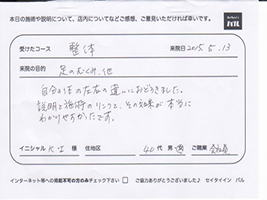 本日の施術や説明について、店内についてなどご感想、ご意見いただければ幸いです。
セイタイイン
パル
受けたコース 整体 来院日 2015.5.13
来院の目的 足のむくみ、他
自分の体の左右の違いにおどろきました。
説明と施術のリンクと、その効果が本当に
わかりやすかったです。
イニシャル K・I 様 住地区 40代 男・女 ご職業 会社員
インターネット等への掲載不可の方のみチェック下さい □ ご協力ありがとうございました♪ セイタイイン パル